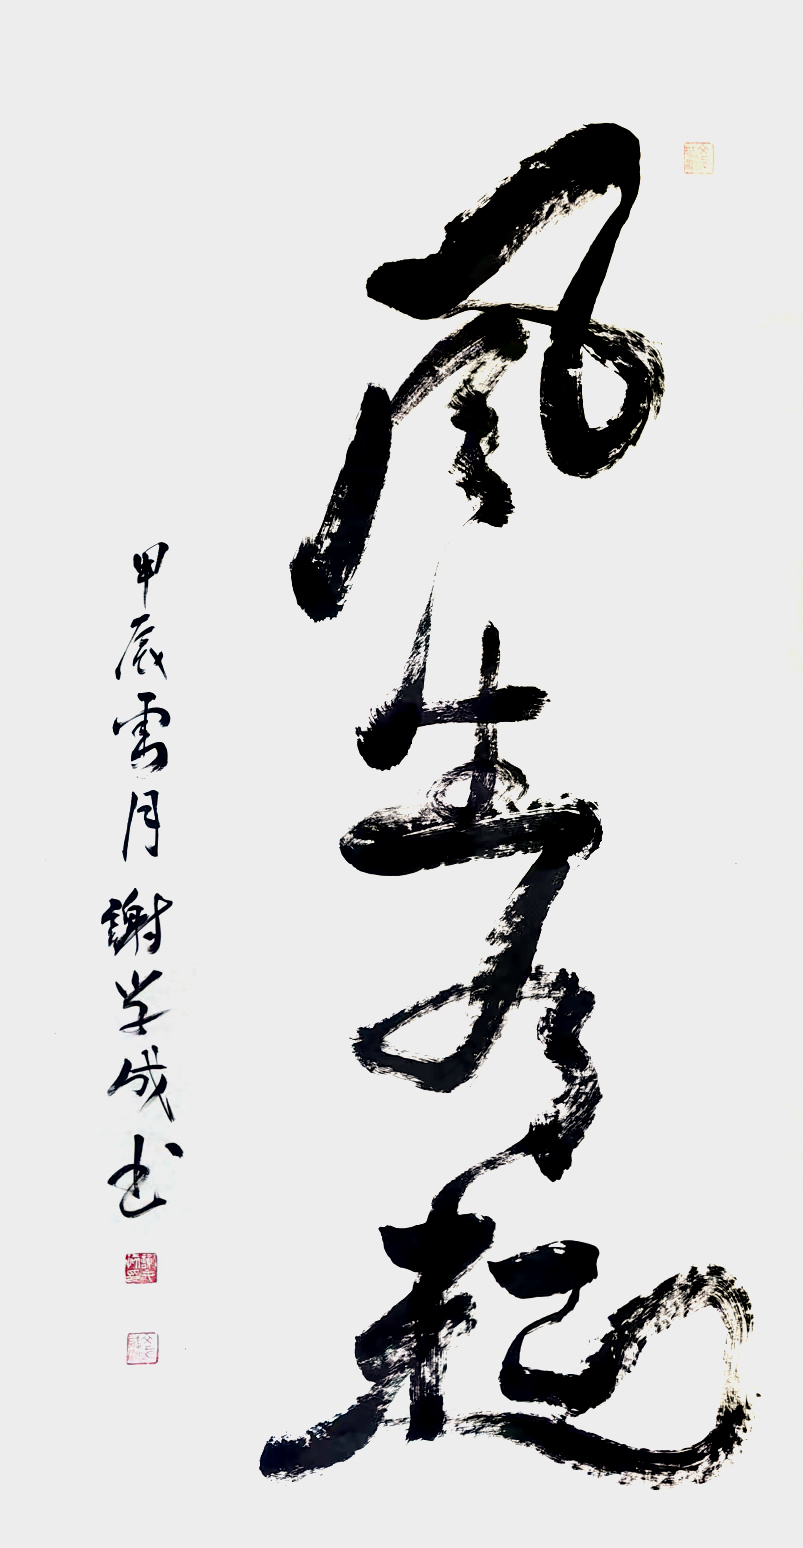 風生水起
甲辰雪月謝学成书